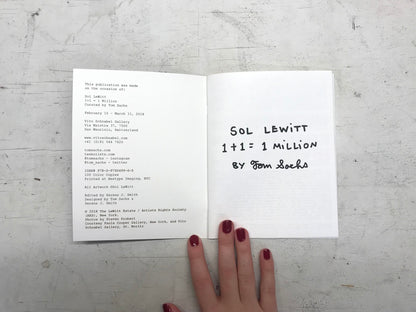 This publication was made
on the occasion of:
Sol LeWitt
1+1 = 1 Million
Curated by Tom Sachs
February 14 - March 11, 2018
Vito Schnabel Gallery
Via Maistra 37, 7500
San Mauritz, Switzerland
www.vitoschnabel.com
tomsachs.com
tenbullets.com
@tomsachs - instagram
@tom_sachs - twitter
Printed at Bestype Imaging, NYC
All Artwork ©Sol LeWitt
Designed by Tom Sachs &
© 2018 The LeWitt Estate / Artists Rights Society
(ARS), New York.
Courtesy Paula Cooper Gallery, New York, and Vito
Schnabel Gallery, St. Moritz
SOL LEWITT
1+1= 1 MILLION
BY Tom Sachs